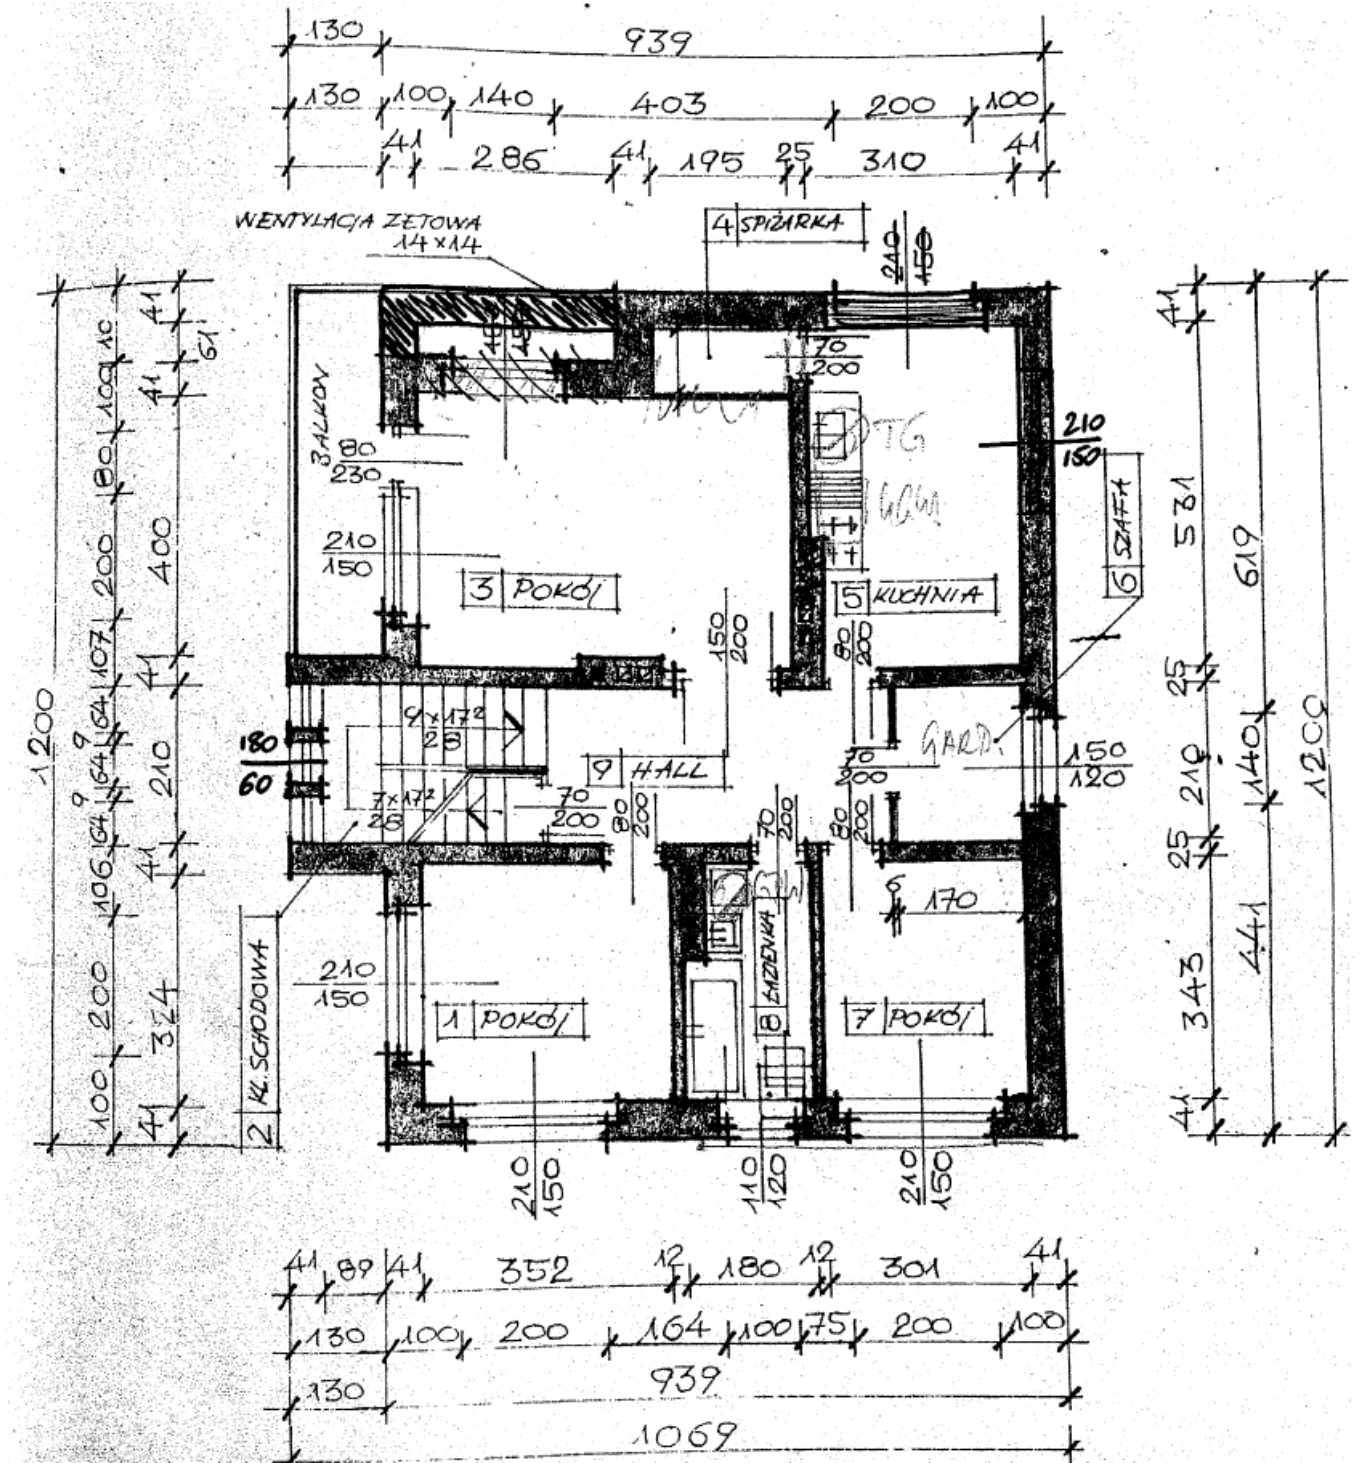 130 939
130 100 140 403 200 100
41 286 41 195 25 310 41
WENTYLACJA ZETOWA
14×14
4 SPIŻARKA
210
150
70
200
BALKON
80
230
210
150
TG
210
150
6 SZAFA
3 POKÓJ
5 KUCHNIA
150
200
80
200
180
60
9×17²
28
7×17²
28
9 HALL
GARD.
70
200
150
120
70
200
80
200
70
200
80
200
6 170
2 KL. SCHODOWA
210
150
1 POKÓJ
8 ŁAZIENKA
7 POKÓJ
210
150
110
120
210
150
1200
100 200 106 64 9 64 9 64 107 200 80 100 10
41 324 41 210 41 400 41 61 41
41 531 25 210 25 343 41
619 140 441
1200
41 89 41 352 12 180 12 301 41
130 100 200 164 100 75 200 100
130 939
1069